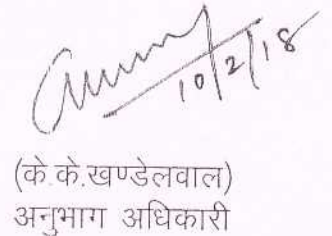 10/2/18
(के.के.खण्डेलवाल)
अनुभाग अधिकारी